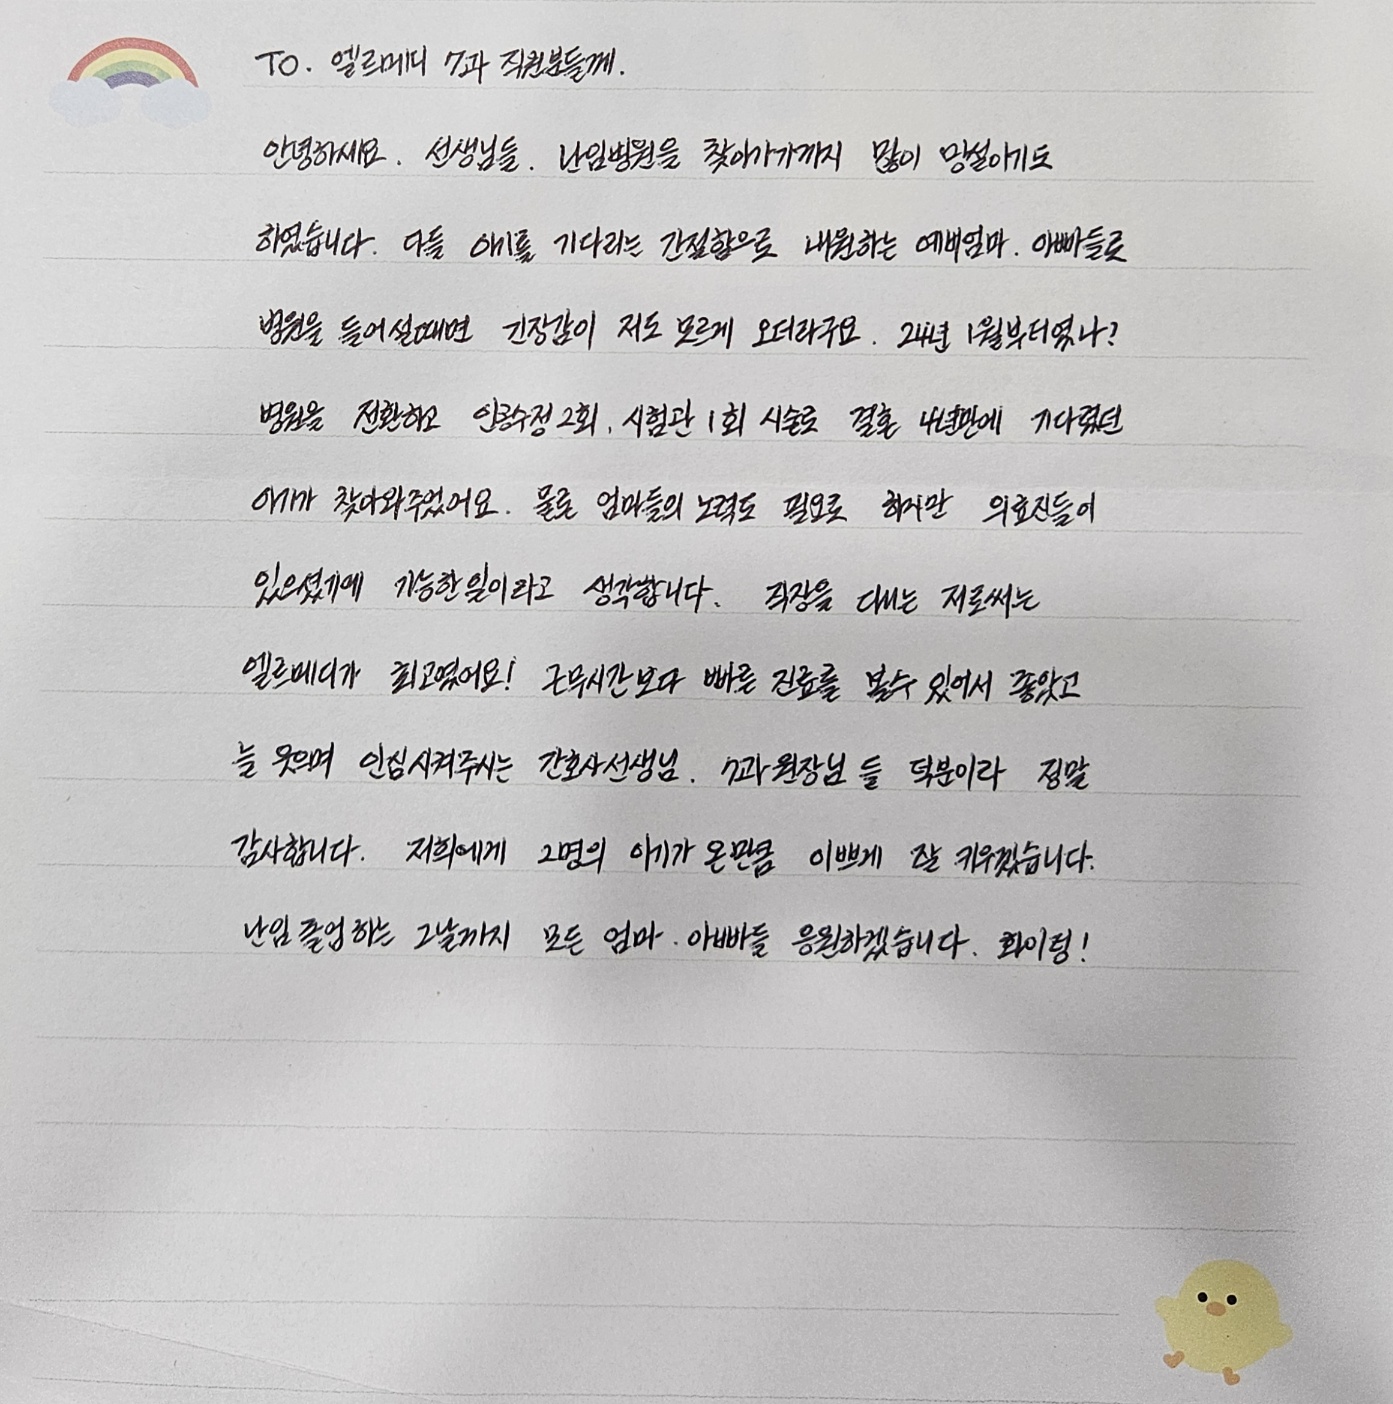 TO. 엘르메디 7과 직원분들께.
안녕하세요. 선생님들. 난임병원을 찾아가기까지 많이 망설이기도
하였습니다. 다들 아기를 기다리는 간절함으로 내원하는 예비엄마. 아빠들로
병원을 들어설때면 긴장감이 저도 모르게 오더라구요. 24년 1월부터였나?
병원을 전환하고 인공수정 2회, 시험관 1회 시술로 결혼 4년만에 기다렸던
아기가 찾아와주었어요. 물론 엄마들의 노력도 필요로 하지만 의료진들이
있으셨기에 가능한 일이라고 생각합니다. 직장을 다니는 저로써는
엘르메디가 최고였어요! 근무시간보다 빠른 진료를 볼수 있어서 좋았고
늘 웃으며 안심시켜주시는 간호사선생님. 7과 원장님 들 덕분이라 정말
감사합니다. 저희에게 2명의 아기가 온만큼 이쁘게 잘 키우겠습니다.
난임 졸업하는 그날까지 모든 엄마. 아빠들 응원하겠습니다. 화이팅!